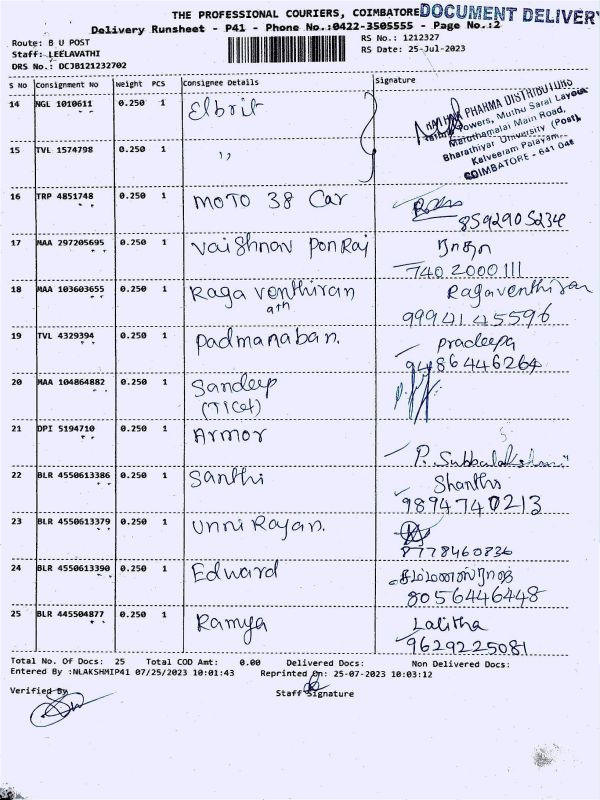 THE PROFESSIONAL COURIERS, COIMBATORE DOCUMENT DELIVERY
Delivery Runsheet - P41 - Phone No.:0422-3505555 - Page No.:2
Route: B U POST RS No.: 1212327
Staff: LEELAVATHI RS Date: 25-Jul-2023
DRS No.: DCJB121232702
S No Consignment No Weight PCS Consignee Details Signature
14 NGL 1010611 0.250 1 Elbrit
PHARMA DISTRIBUTORS
Towers, Muthu Sarai Layout
Maruthamalai Main Road,
Bharathiyar University (Post),
Kalveeram Palayam,
COIMBATORE - 641 046
15 TVL 1574798 0.250 1 ,,
16 TRP 4851748 0.250 1 MOTO 38 Car
8592905234
17 MAA 297205695 0.250 1 Vaishnav PonRaj ராதா
740 2000111
18 MAA 103603655 0.250 1 Raga Venthiran Ragaventhiran
9th 9994145596
19 TVL 4329394 0.250 1 Padmanaban. pradeepa
9486446264
20 MAA 104864882 0.250 1 Sandeep
(TICel)
21 DPI 5194710 0.250 1 Armor
P. Subbalakshmi
22 BLR 4550613386 0.250 1 Santhi Shanthi
9894740213
23 BLR 4550613379 0.250 1 Unni Rajan.
8778460836
24 BLR 4550613390 0.250 1 Edward
8056446448
25 BLR 445504877 0.250 1 Ramya Lalitha
9629225081
Total No. Of Docs: 25 Total COD Amt: 0.00 Delivered Docs: Non Delivered Docs:
Entered By :NLAKSHMIP41 07/25/2023 10:01:43 Reprinted On: 25-07-2023 10:03:12
Verified By Staff Signature